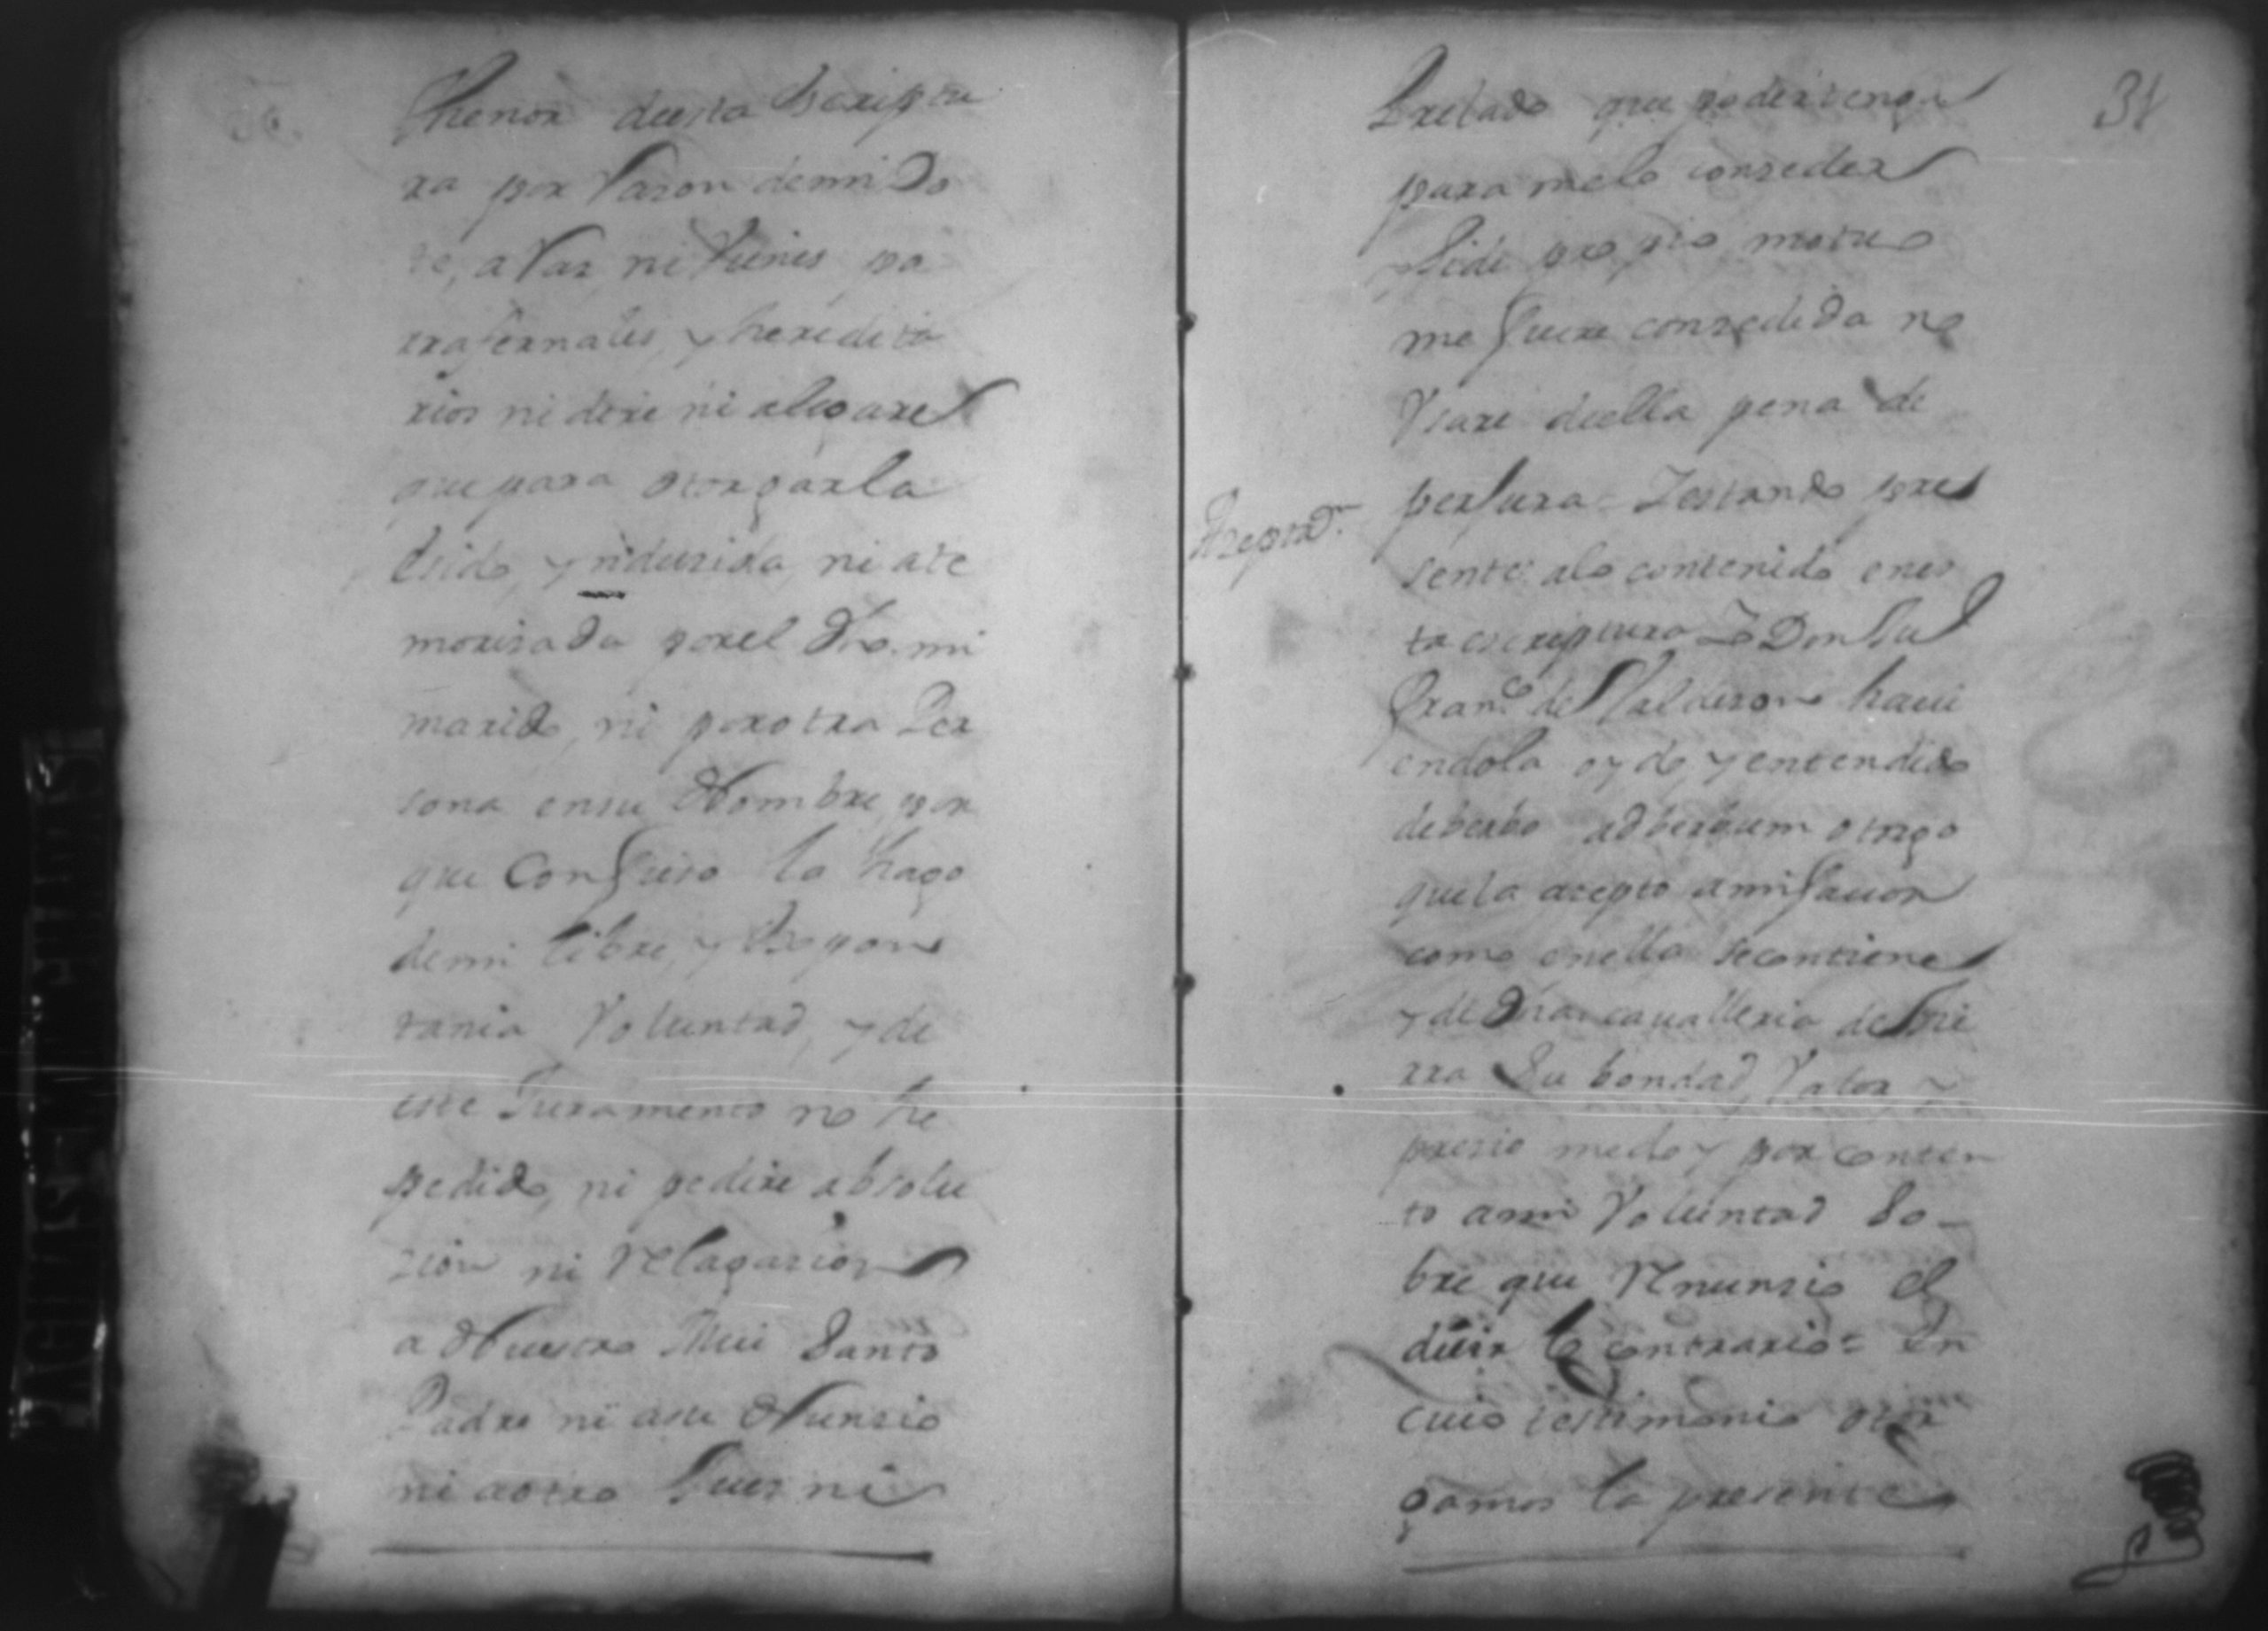 thenor de esta Scriptu
ra por razon de mi Do
te, a rras, ni vienes pa
rafernales, y heredita
rios ni dire ni alegare
que para otorgarla
è sido, ynduzida, ni ate
morisada por el dho. mi
marido, ni por otra Per
sona en su Nombre, por
que Confieso la hago
de mi libre, y Espon
tania Voluntad, y de
este Juramento no he
pedido, ni pedire absolu
zion ni relaxazion
a Nuestro Mui Santo
Padre ni a su Nunzio
ni a otro Juez ni
31
Prelado que poder tenga
para melo conzeder
y si de propio motuo
me fuere conzedida no
Vsare de ella pena de
perjura = Y estando pre
Azeptaon.
sente a lo contenido en es
ta escriptura Yo Don Ju
Franco. de Valderon havi
endola oydo, y entendido
de berbo adberbum otorgo
que la azepto a mi favor
como en ella se contiene
y de dha. cavalleria de tie
rra Su bondad, Valor y
prezio me doy por conten
to a mi Voluntad So-
bre que renunzio el
dezir lo contrario = En
cuio testimonio otor
gamos la presente